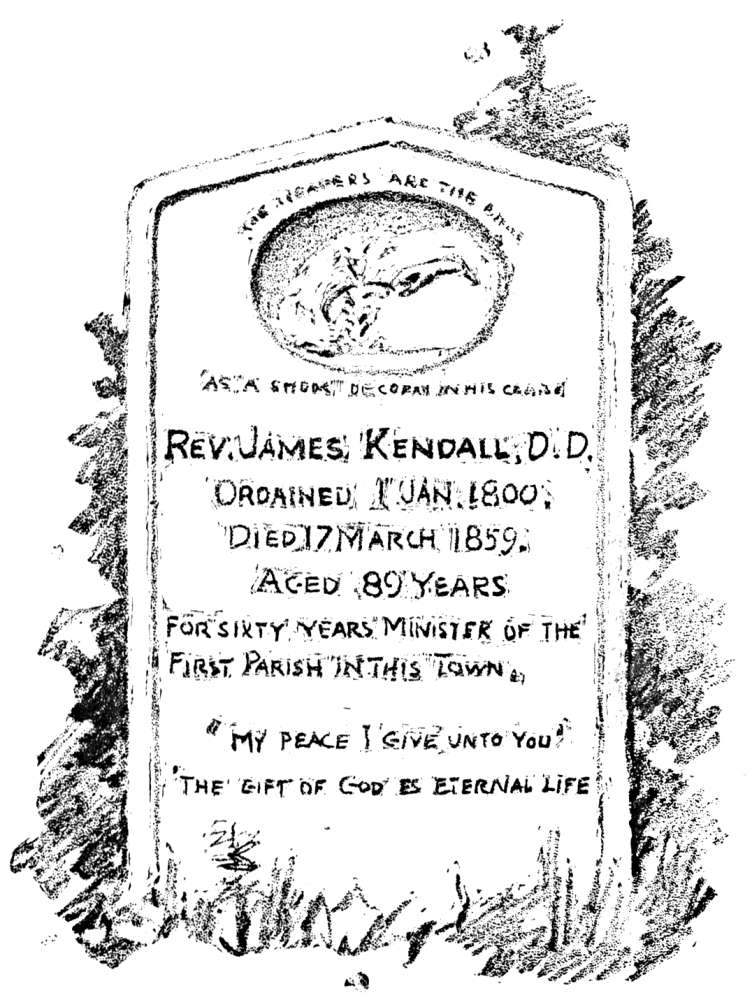 THE REAPERS ARE THE
"AS A SHOCK IN HIS
REV. JAMES KENDALL, D.D.
ORDAINED 1 JAN. 1800.
DIED 17 MARCH 1859.
AGED 89 YEARS
FOR SIXTY YEARS MINISTER OF THE
FIRST PARISH IN THIS TOWN.
"MY PEACE I GIVE UNTO YOU"
"THE GIFT OF GOD IS ETERNAL LIFE